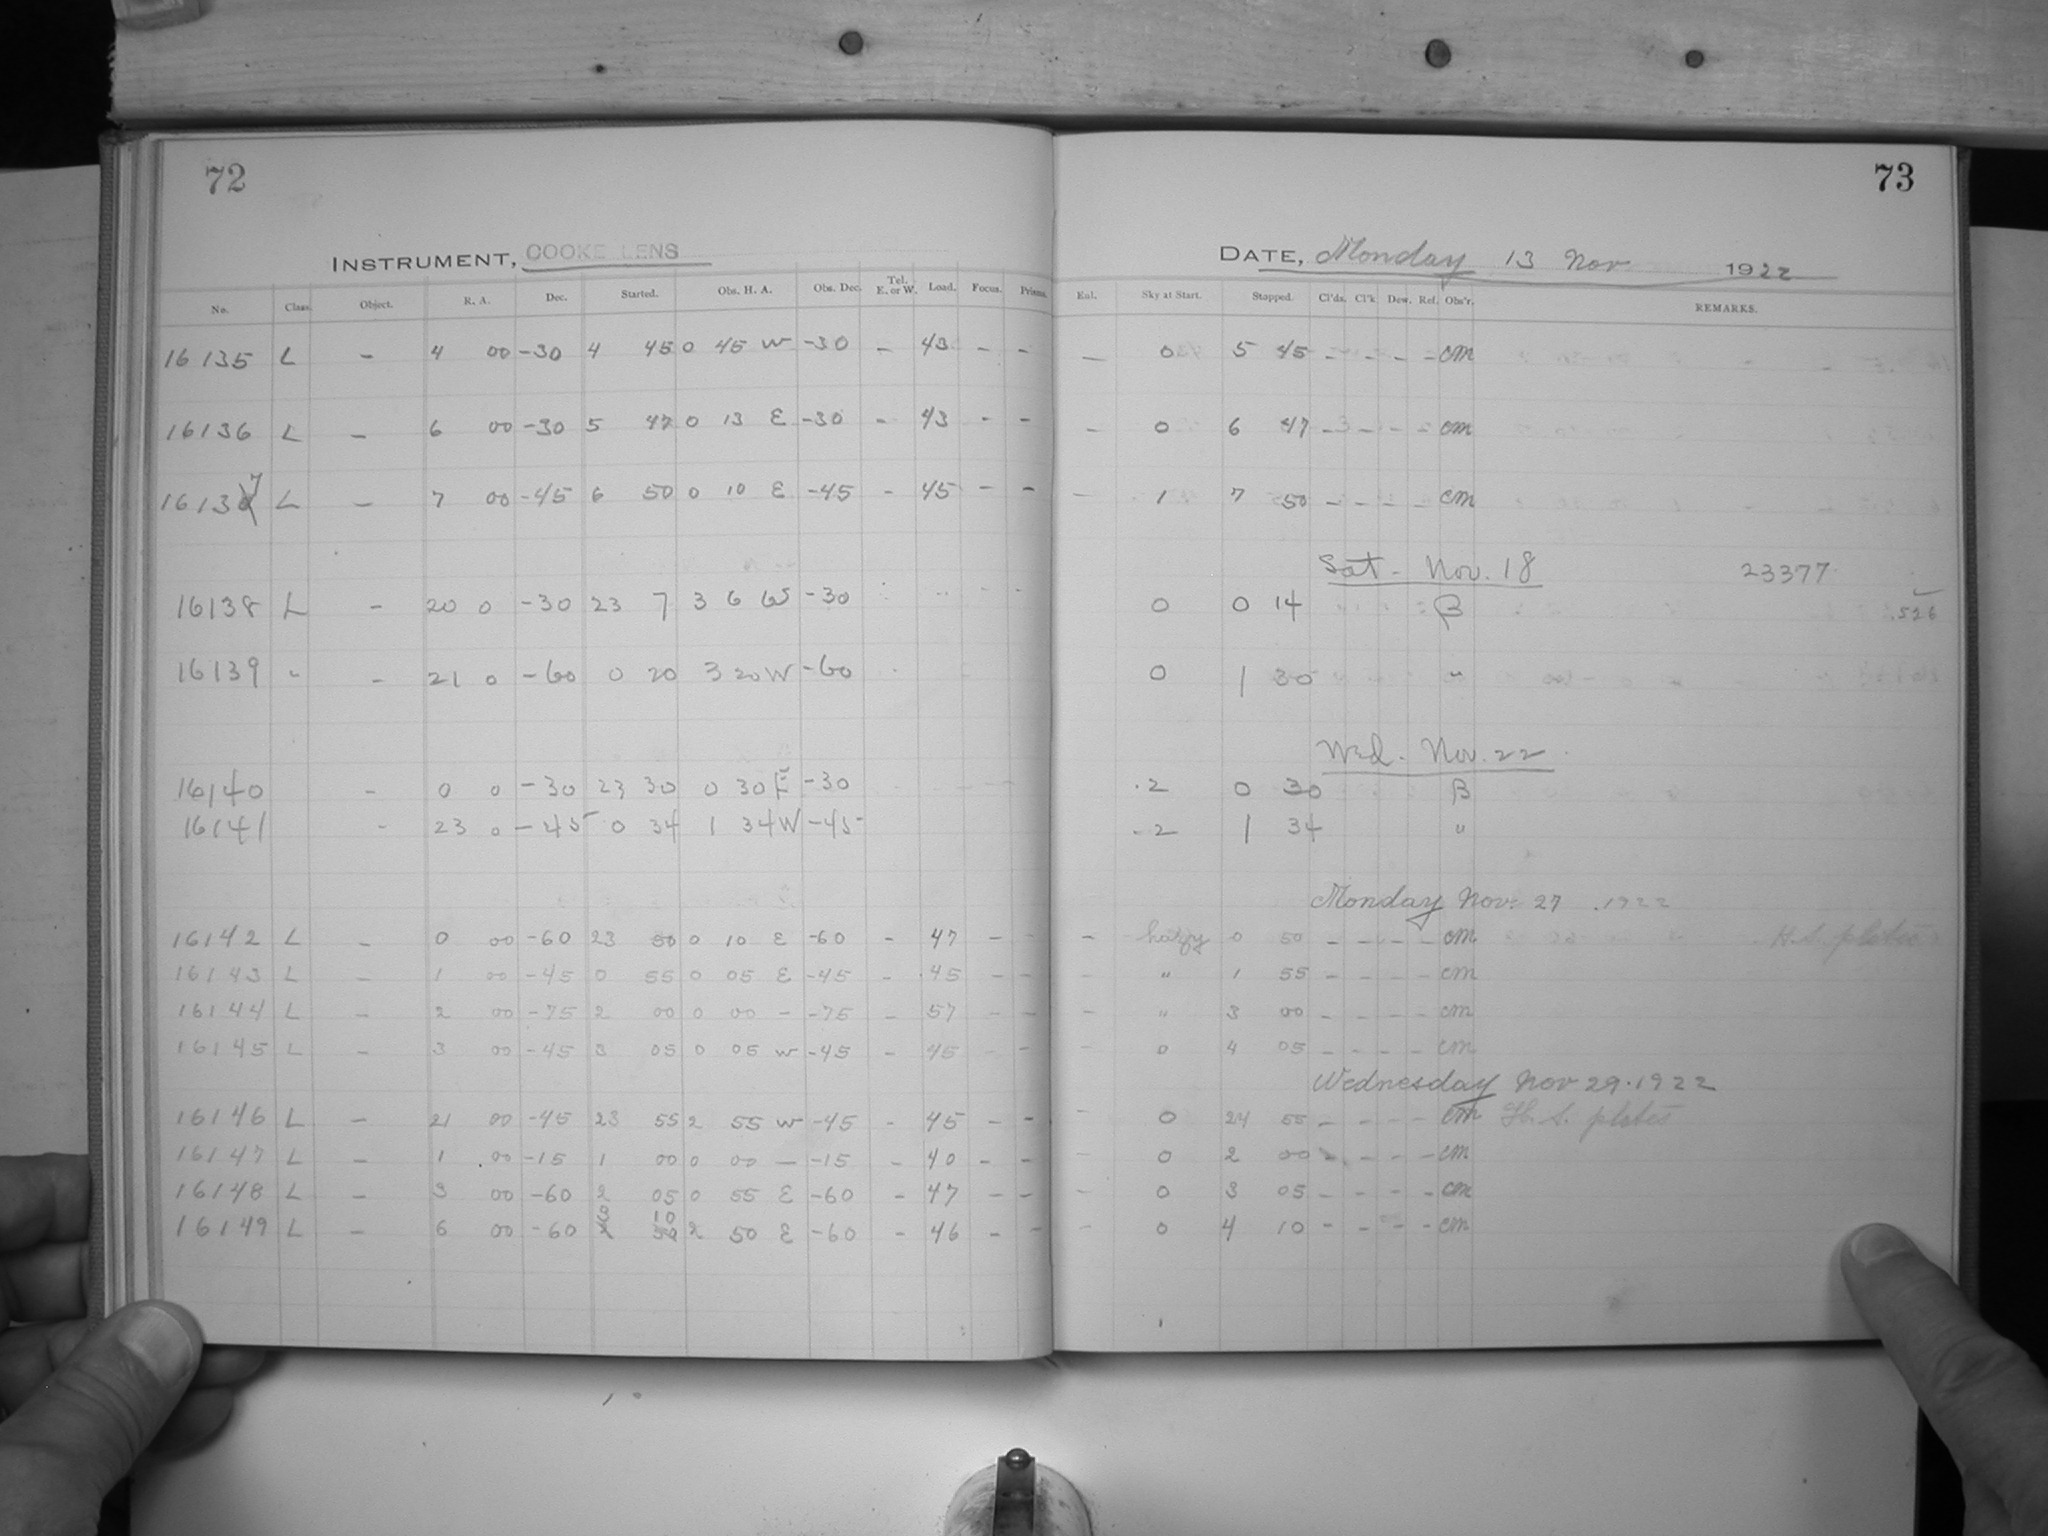 72
INSTRUMENT, COOKE LENS
No. Class. Object. R. A. Dec. Started. Obs. H. A. Obs. Dec. Tel. E. or W. Load. Focus. Prisms.
16135 L - 4 00 -30 4 45 0 45 W -30 - 43 - -
16136 L - 6 00 -30 5 47 0 13 E -30 - 43 - -
16137 L - 7 00 -45 6 50 0 10 E -45 - 45 - -
16138 L - 20 0 -30 23 7 3 6 W -30
16139 " - 21 0 -60 0 20 3 20 W -60
16140 - 0 0 -30 23 30 0 30 E -30
16141 - 23 0 -45 0 34 1 34 W -45
16142 L - 0 00 -60 23 50 0 10 E -60 - 47 - -
16143 L - 1 00 -45 0 55 0 05 E -45 - 45 - -
16144 L - 2 00 -75 2 00 0 00 - -75 - 57 - -
16145 L - 3 00 -45 3 05 0 05 W -45 - 45 - -
16146 L - 21 00 -45 23 55 2 55 W -45 - 45 - -
16147 L - 1 00 -15 1 00 0 00 - -15 - 40 - -
16148 L - 3 00 -60 2 05 0 55 E -60 - 47 - -
16149 L - 6 00 -60 3 10 2 50 E -60 - 46 - -
73
DATE, Monday 13 Nov 1922
Enl. Sky at Start. Stopped. Cl'ds. Cl'k Dew. Ref. Obs'r. REMARKS.
- 0 5 45 - - - - CM
- 0 6 47 - - - - CM
- 1 7 50 - - - - CM
Sat. Nov. 18 23377
0 0 14 B .526
0 1 30 "
Wed. Nov. 22
.2 0 30 B
.2 1 34 "
Monday Nov. 27 .1922
- hazy 0 50 - - - - CM H.S. plates
- " 1 55 - - - - CM
- " 3 00 - - - - CM
- 0 4 05 - - - - CM
Wednesday Nov 29.1922
- 0 24 55 - - - - CM H.S. plates
- 0 2 00 - - - - CM
- 0 3 05 - - - - CM
- 0 4 10 - - - - CM